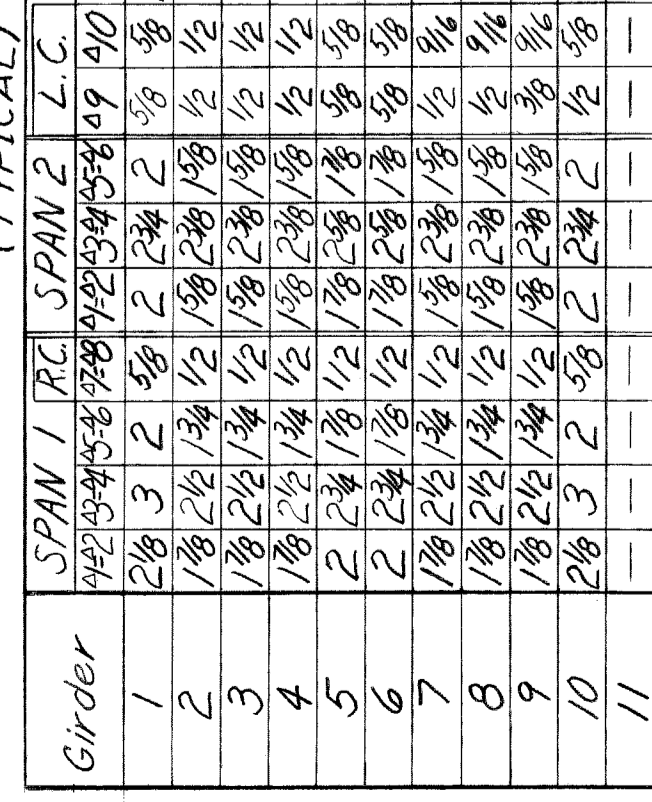 (TYPICAL)
SPAN 1 R.C. SPAN 2 L.C.
Girder Δ1=Δ2 Δ3=Δ4 Δ5=Δ6 Δ7=Δ8 Δ1=Δ2 Δ3=Δ4 Δ5=Δ6 Δ9 Δ10
1 2 1/8 3 2 5/8 2 2 3/4 2 5/8 5/8
2 1 7/8 2 1/2 1 3/4 1/2 1 5/8 2 3/8 1 5/8 1/2 1/2
3 1 7/8 2 1/2 1 3/4 1/2 1 5/8 2 3/8 1 5/8 1/2 1/2
4 1 7/8 2 1/2 1 3/4 1/2 1 5/8 2 3/8 1 5/8 1/2 1/2
5 2 2 3/4 1 7/8 1/2 1 7/8 2 5/8 1 7/8 5/8 5/8
6 2 2 3/4 1 7/8 1/2 1 7/8 2 5/8 1 7/8 5/8 5/8
7 1 7/8 2 1/2 1 3/4 1/2 1 5/8 2 3/8 1 5/8 1/2 9/16
8 1 7/8 2 1/2 1 3/4 1/2 1 5/8 2 3/8 1 5/8 1/2 9/16
9 1 7/8 2 1/2 1 3/4 1/2 1 5/8 2 3/8 1 5/8 3/8 9/16
10 2 1/8 3 2 5/8 2 2 3/4 2 1/2 5/8
11 — — — — — — — — —